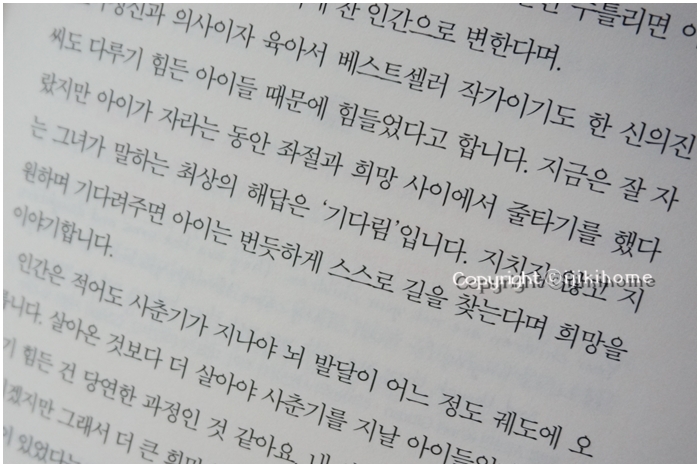 찬 인간으로 변한다며.
의사이자 육아서 베스트셀러 작가이기도 한 신의진
씨도 다루기 힘든 아이들 때문에 힘들었다고 합니다. 지금은 잘 자
랐지만 아이가 자라는 동안 좌절과 희망 사이에서 줄타기를 했다
는 그녀가 말하는 최상의 해답은 '기다림'입니다. 지치지 않고 지
원하며 기다려주면 아이는 번듯하게 스스로 길을 찾는다며 희망을
이야기합니다.
인간은 적어도 사춘기가 지나야 뇌 발달이 어느 정도 궤도에 오
릅니다. 살아온 것보다 더 살아야 사춘기를 지날
기 힘든 건 당연한 과정인 것 같아요.
그래서 더 큰
있었다는
Copyright ©